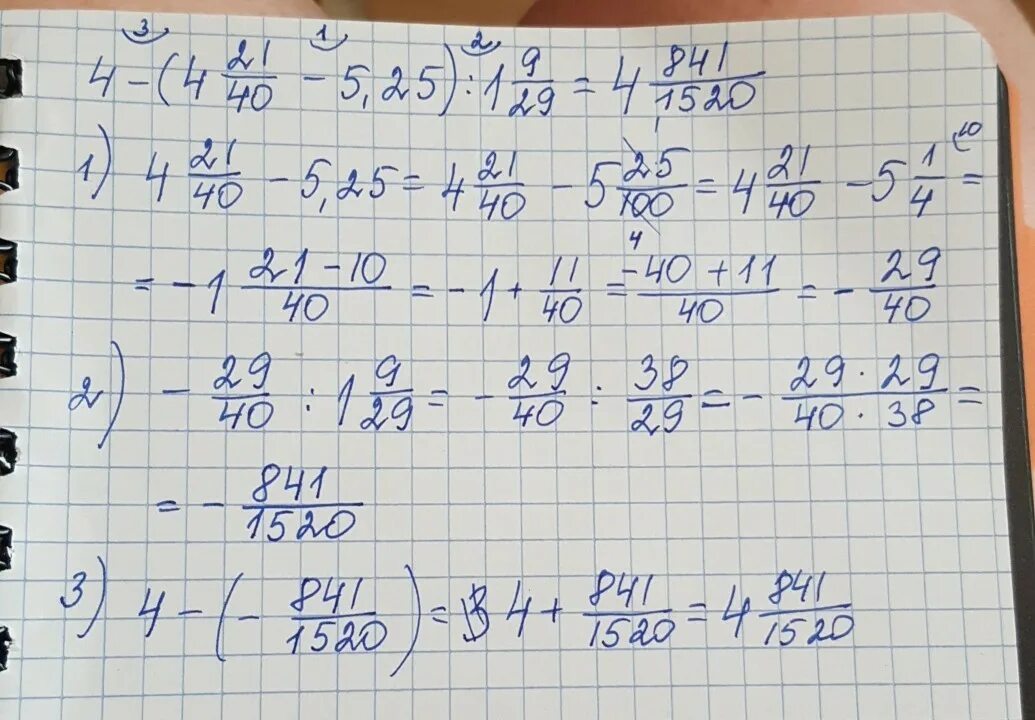 4 - (4 21/40 - 5,25) : 1 9/29 = 4 841/1520
1) 4 21/40 - 5,25 = 4 21/40 - 5 25/100 = 4 21/40 - 5 1/4 =
= -1 (21-10)/40 = -1 + 11/40 = (-40+11)/40 = - 29/40
2) - 29/40 : 1 9/29 = - 29/40 : 38/29 = - (29·29)/(40·38) =
= - 841/1520
3) 4 - (- 841/1520) = 4 + 841/1520 = 4 841/1520